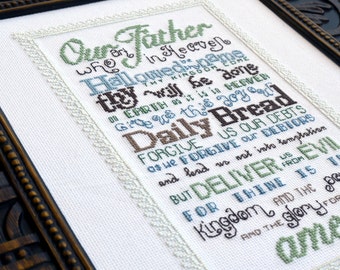 Our Father
who art in Heaven
Hallowed
thy will be done
on EARTH as it is in HEAVEN
give us this day our
Daily Bread
FORGIVE US OUR DEBTS
as we FORGIVE our DEBTORS
and lead us not into temptation
BUT DELIVER us from EVIL
FOR THINE IS
Kingdom AND THE
AND THE glory FOR
ame